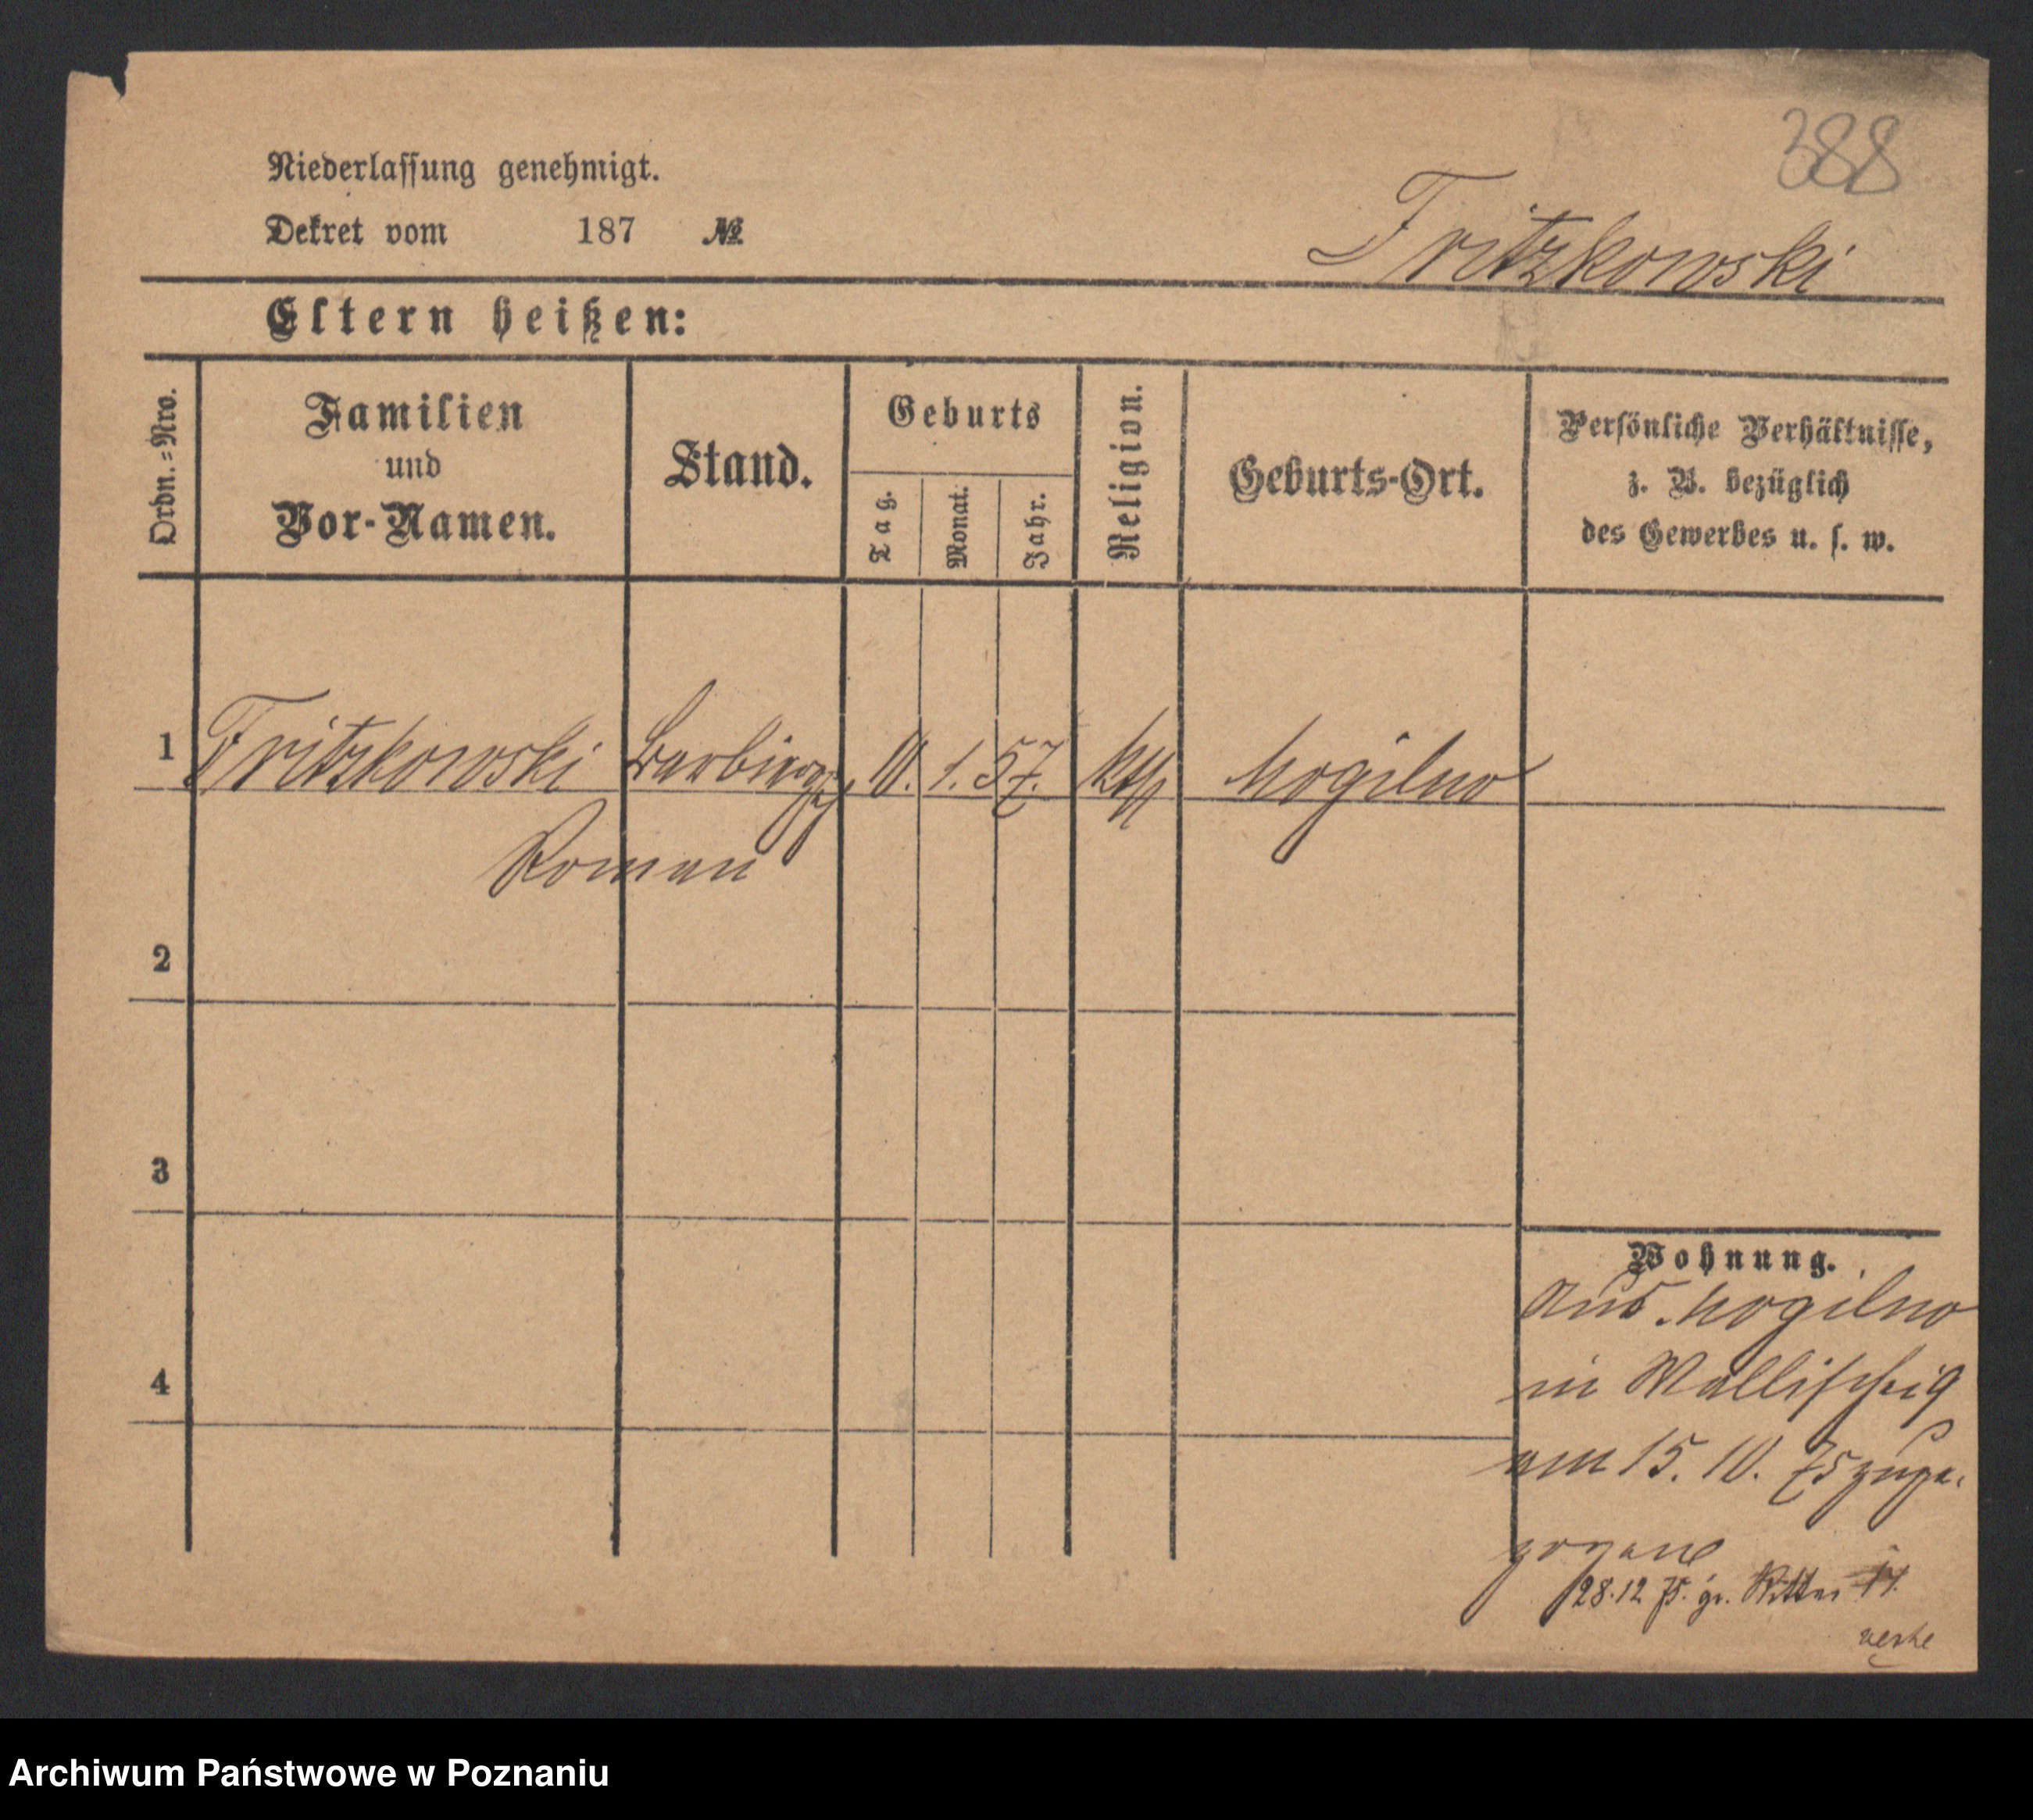 388
Niederlassung genehmigt.
Dekret vom 187 №
Fritzkowski
Eltern heißen:
Ordn.-Nro.
Familien
und
Vor-Namen.
Stand.
Geburts
Tag.
Monat.
Jahr.
Religion.
Geburts-Ort.
Persönliche Verhältnisse,
z. B. bezüglich
des Gewerbes u. s. w.
1 Fritzkowski 10. 1. 57. kth Mogilno
Roman
2
3
4
Wohnung.
aus Mogilno
in Wallischeig
am 15. 10. 75 zuge-
zogen
28.12 75. gr. Ritter 17.
Archiwum Państwowe w Poznaniu